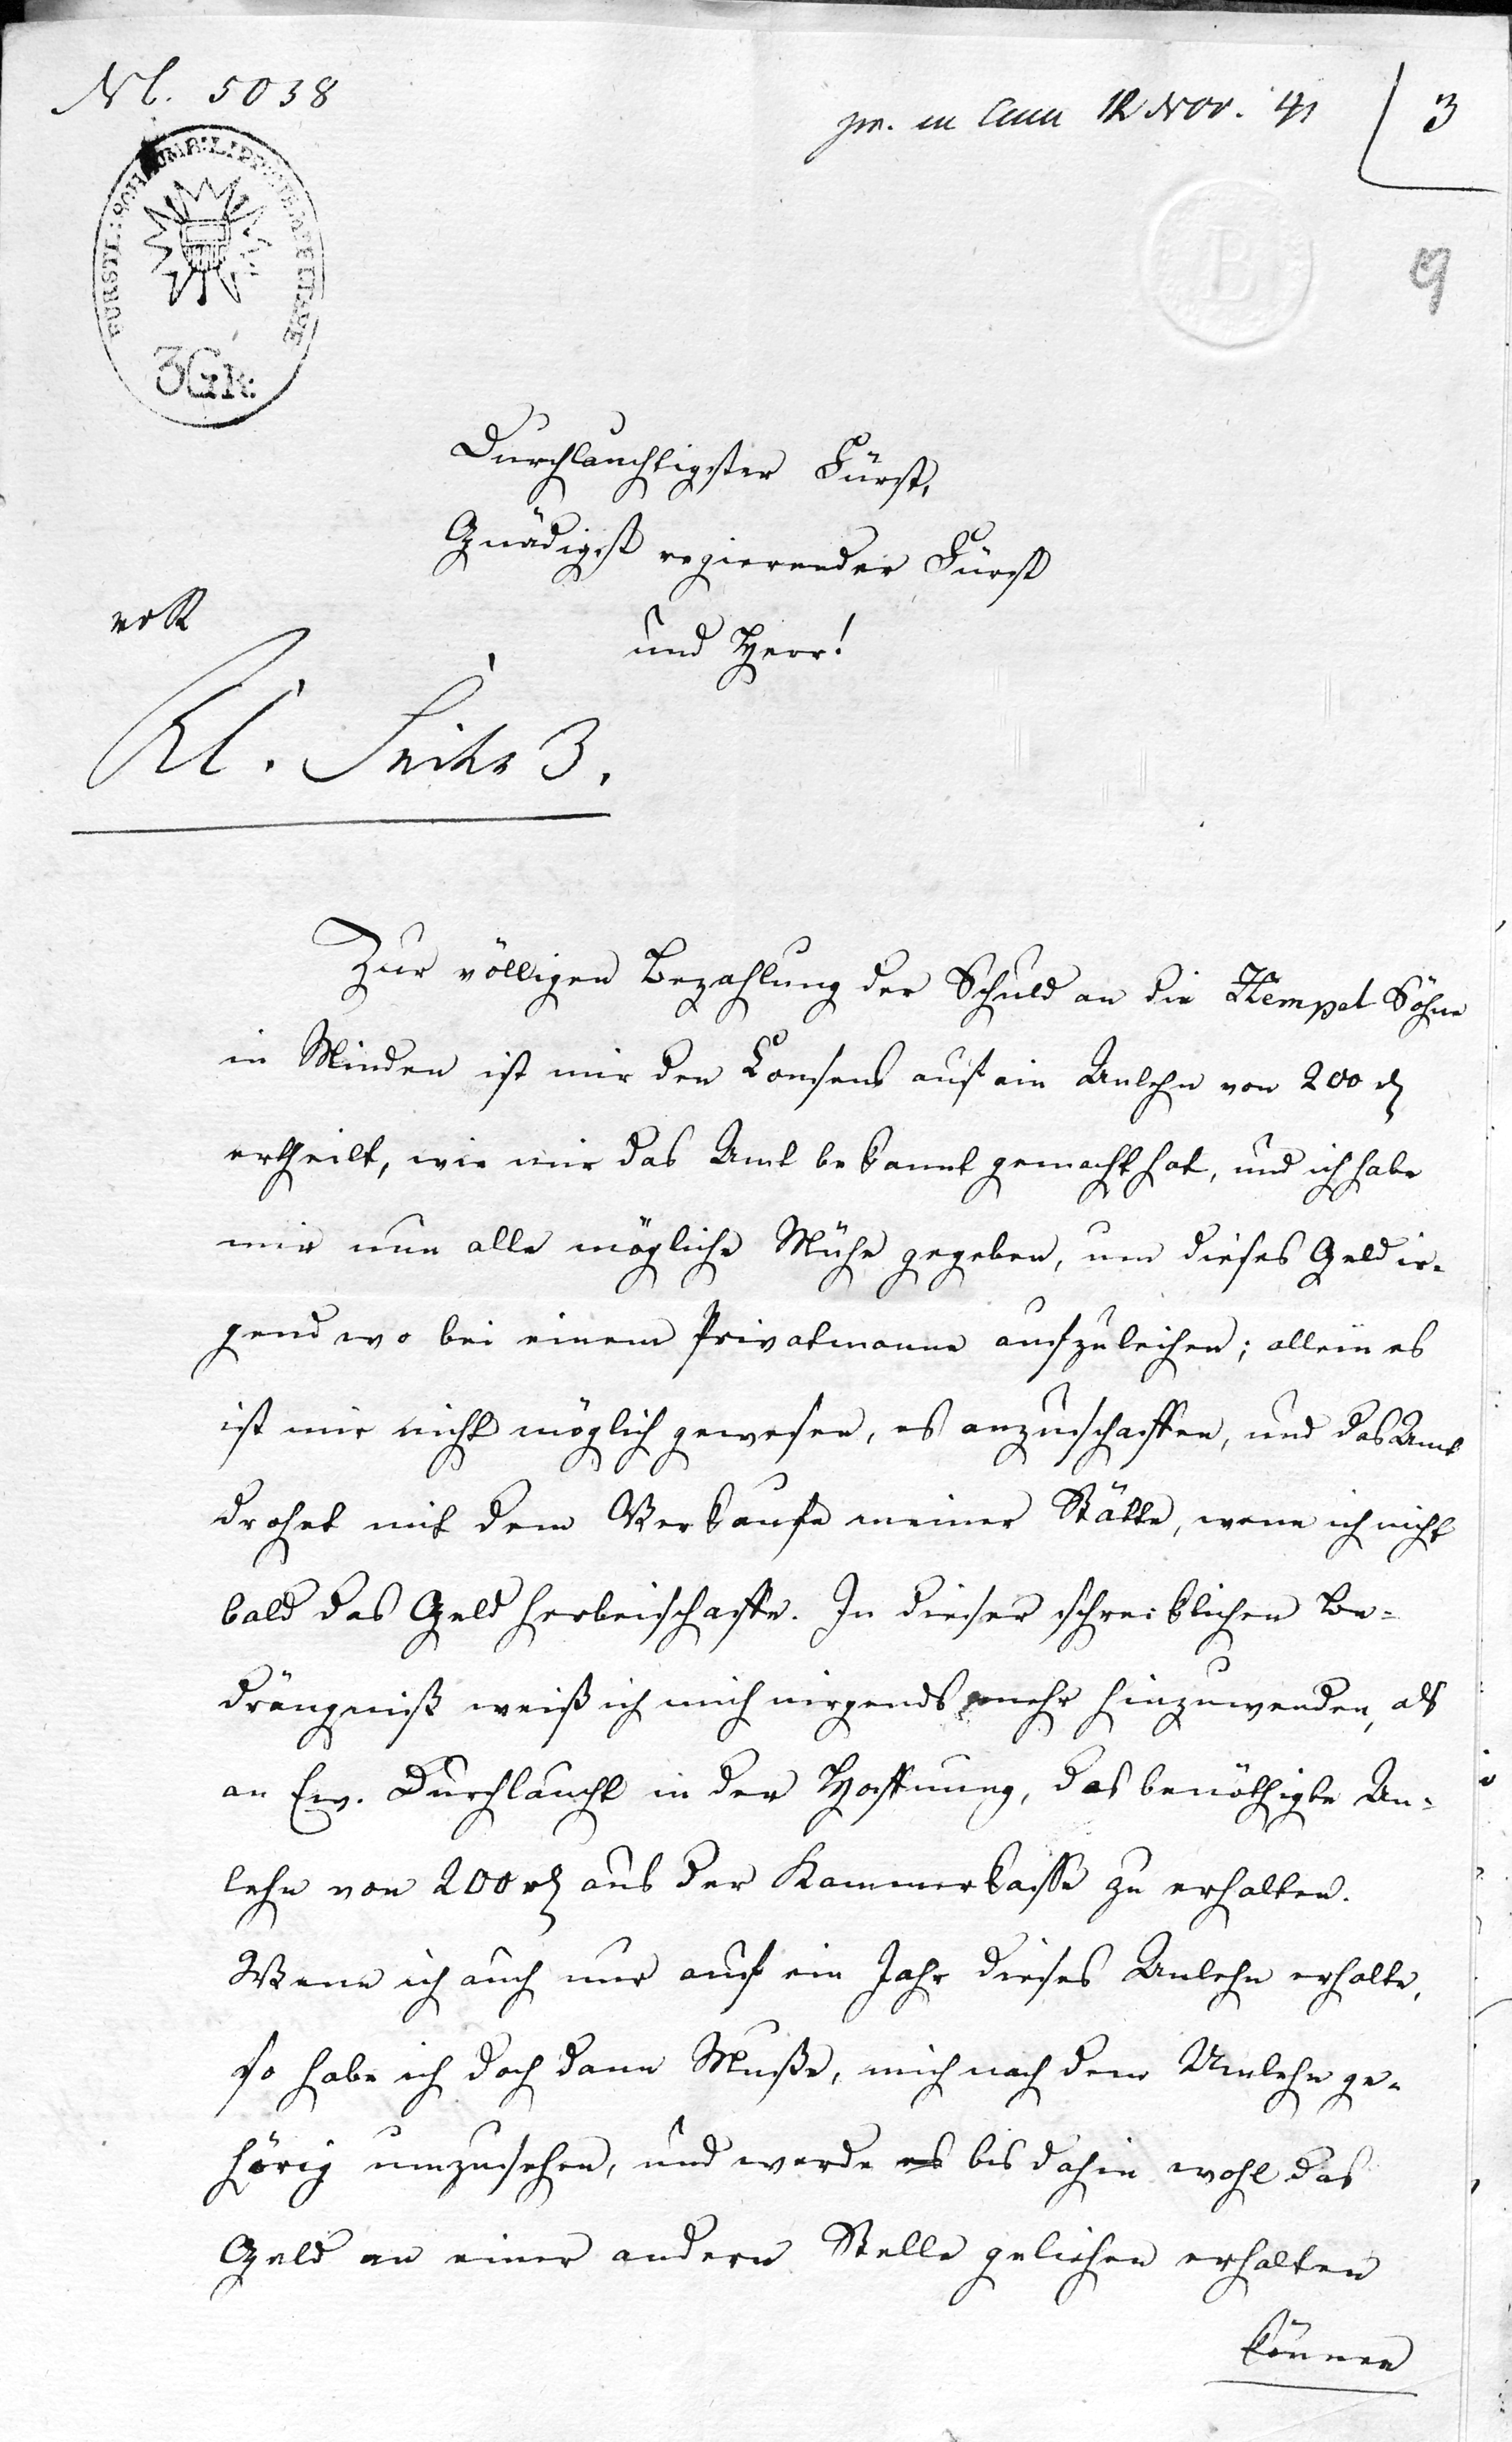 Nl. 5038
pr. in Cam 12 Nov. 41
3
9
FÜRSTL: SCHAUMB: LIPP: STEMPELTAXE
3Gr:
Durchlauchtigster Fürst,
Gnädigst regierender Fürst
und Herr!
Kl. Seite 3.
Zur völligen Bezahlung der Schuld an die Hempel Söhne
in Minden ist mir der Consens auf ein Anlehn von 200 rt
ertheilt, wie mir das Amt bekannt gemacht hat, und ich habe
mir nun alle mögliche Mühe gegeben, um dieses Geld ir-
gend wo bei einem Privatmanne aufzuleihen; allein es
ist mir nicht möglich gewesen, es anzuschaffen, und das Amt
drohet mit dem Verkaufe meiner Stätte, wenn ich nicht
bald das Geld herbeischaffe. In dieser schrecklichen Be-
drängniß weiß ich mich nirgends mehr hinzuwenden, als
an Ew. Durchlaucht in der Hoffnung, das benöthigte An-
lehn von 200 rt aus der Kammerkasse zu erhalten.
Wenn ich auch nur auf ein Jahr dieses Anlehn erhalte,
so habe ich doch dann Muße, mich nach dem Anlehn ge-
hörig umzusehen, und werde es bis dahin wohl das
Geld an einer andern Stelle geliehen erhalten
können